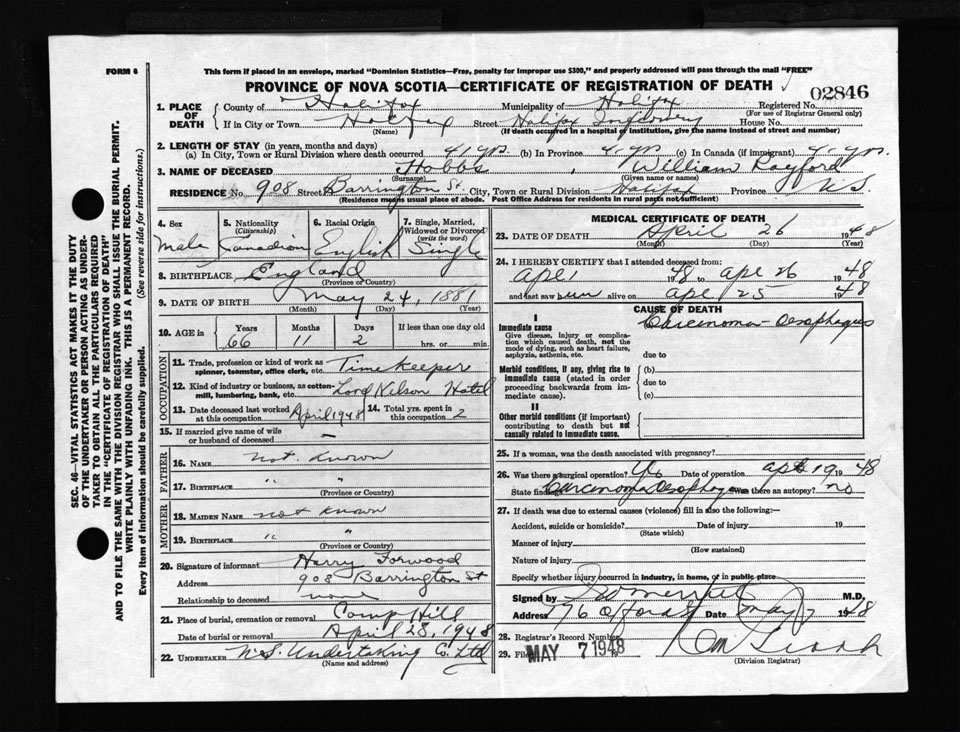 FORM 6
This form if placed in an envelope, marked "Dominion Statistics—Free, penalty for improper use $300," and properly addressed will pass through the mail "FREE"
PROVINCE OF NOVA SCOTIA—CERTIFICATE OF REGISTRATION OF DEATH
02846
1. PLACE OF DEATH
County of Halifax Municipality of Halifax Registered No.
(For use of Registrar General only)
If in City or Town Halifax Street Halifax Infirmary House No.
(Name) (If death occurred in a hospital or institution, give the name instead of street and number)
2. LENGTH OF STAY (in years, months and days)
(a) In City, Town or Rural Division where death occurred 41 yrs. (b) In Province (c) In Canada (if immigrant)
3. NAME OF DECEASED Hobbs, William Rayford
(Surname) (Given name or names)
RESIDENCE No. 908 Street Barrington St. City, Town or Rural Division Halifax Province N.S.
(Residence means usual place of abode. Post Office Address for residents in rural parts not sufficient)
4. Sex
Male
5. Nationality
(Citizenship)
Canadian
6. Racial Origin
English
7. Single, Married, Widowed or Divorced
(write the word)
Single
8. BIRTHPLACE England
(Province or Country)
9. DATE OF BIRTH May 24, 1881
(Month) (Day) (Year)
10. AGE in Years Months Days If less than one day old
66 11 2 hrs. or min.
OCCUPATION
11. Trade, profession or kind of work as spinner, teamster, office clerk, etc. Time Keeper
12. Kind of industry or business, as cotton-mill, lumbering, bank, etc. Lord Nelson Hotel
13. Date deceased last worked at this occupation April 1948
14. Total yrs. spent in this occupation 2
15. If married give name of wife or husband of deceased —
FATHER
16. NAME not known
17. BIRTHPLACE " "
(Province or Country)
MOTHER
18. MAIDEN NAME not known
19. BIRTHPLACE " "
(Province or Country)
20. Signature of informant Harry Forwood
Address 908 Barrington St
Relationship to deceased none
21. Place of burial, cremation or removal Camp Hill
Date of burial or removal April 28, 1948
22. UNDERTAKER N.S. Undertaking Co. Ltd
(Name and address)
MEDICAL CERTIFICATE OF DEATH
23. DATE OF DEATH April 26 1948
(Month) (Day) (Year)
24. I HEREBY CERTIFY that I attended deceased from:
Apl 1 1948 to Apl 26 1948
and last saw him alive on Apl 25 1948
CAUSE OF DEATH
I
Immediate cause Carcinoma - Oesophagus
Give disease, injury or complication which caused death, not the mode of dying, such as heart failure, asphyxia, asthenia, etc.
due to
Morbid conditions, if any, giving rise to immediate cause (stated in order proceeding backwards from immediate cause).
(b)
due to
(c)
II
Other morbid conditions (if important) contributing to death but not causally related to immediate cause.
25. If a woman, was the death associated with pregnancy?
26. Was there a surgical operation? Yes Date of operation Apl 19 1948
State findings Carcinoma Oesophagus Was there an autopsy? no
27. If death was due to external causes (violence) fill in also the following:—
Accident, suicide or homicide? Date of injury 19
(State which)
Manner of injury
(How sustained)
Nature of injury
Specify whether injury occurred in industry, in home, or in public place
Signed by M.D.
Address 176 Oxford St Date May 7 1948
28. Registrar's Record Number
29. Filed MAY 7 1948
(Division Registrar)
SEC. 46—VITAL STATISTICS ACT MAKES IT THE DUTY
OF THE UNDERTAKER OR PERSON ACTING AS UNDER-
TAKER TO OBTAIN ALL THE PARTICULARS REQUIRED
IN THE "CERTIFICATE OF REGISTRATION OF DEATH"
AND TO FILE THE SAME WITH THE DIVISION REGISTRAR WHO SHALL ISSUE THE BURIAL PERMIT.
WRITE PLAINLY WITH UNFADING INK. THIS IS A PERMANENT RECORD.
Every item of information should be carefully supplied. (See reverse side for instructions.)